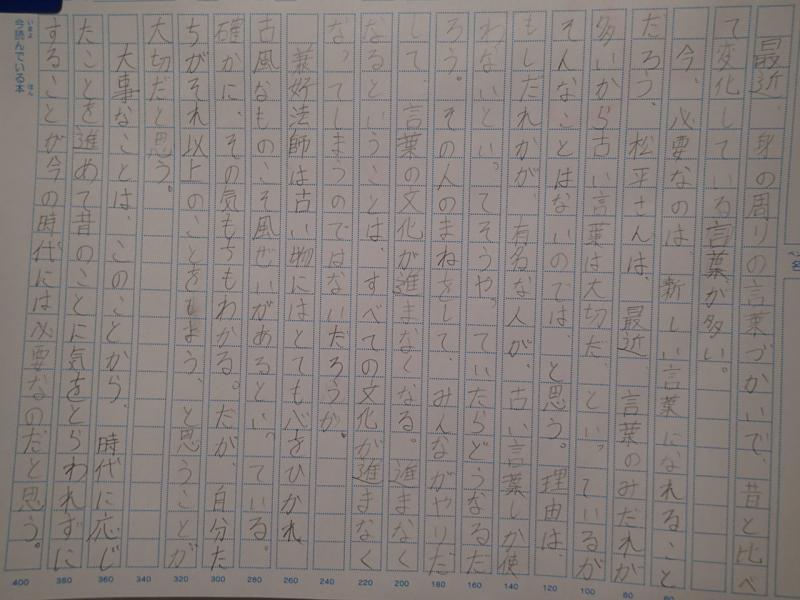 最近、身の周りの言葉づかいで、昔と比べ
て変化している言葉が多い。
今、必要なのは、新しい言葉になれること
だろう。松平さんは、最近、言葉のみだれが
多いから古い言葉は大切だ、といっているが
そんなことはないのでは、と思う。理由は、
もしだれかが、有名な人が、古い言葉しか使
わないといってそうやっていたらどうなるだ
ろう。その人のまねをして、みんながやりだ
して、言葉の文化が進まなくなる。進まなく
なるということは、すべての文化が進まなく
なってしまうのではないだろうか。
兼好法師は古い物にはとても心をひかれ
古風なものこそ風ぜいがあるといっている。
確かに、その気もちもわかる。だが、自分た
ちがそれ以上のことをもよう、と思うことが
大切だと思う。
大事なことは、このことから、時代に応じ
たことを進めて昔のことに気をとらわれずに
することが今の時代には必要なのだと思う。
今読んでいる本
いまよ
ほん
名
60
80
100
120
140
160
180
200
220
240
260
280
300
320
340
360
380
400